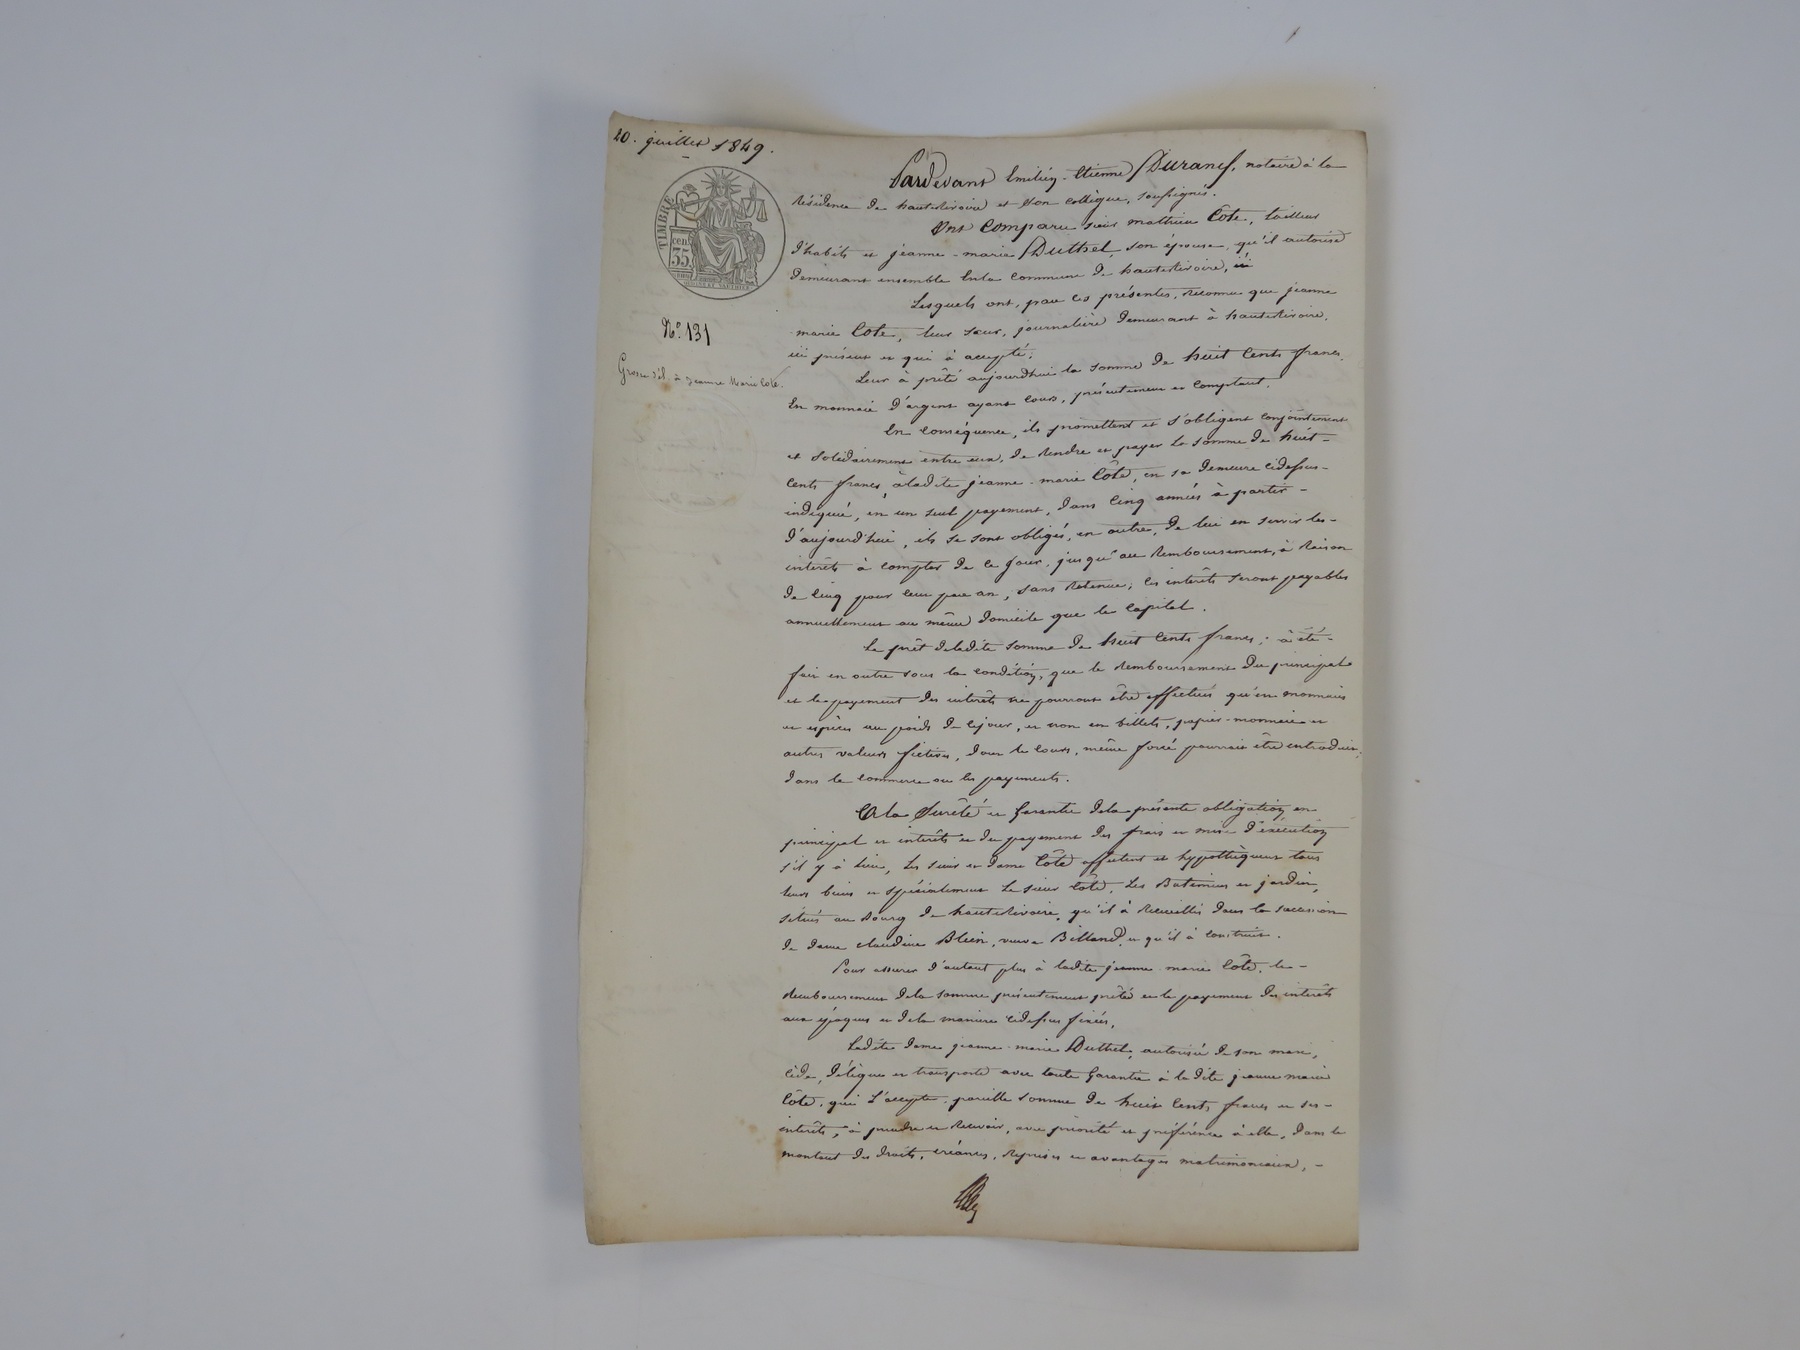 10. juillet 1849.
TIMBRE
cen.
35.
N.º 131
Grosse dél. à Jeanne Marie Cote.
Pardevant Emilien-Etienne Durand, notaire à la
Résidence de hauterivoire et son collègue, soussignés.
Ont Comparu sieur mathieu Côte, tailleur
d'habits et jeanne-marie Duthel, son épouse, qu'il autorise
demeurant ensemble en la commune de hauterivoire, ici
Lesquels ont, par ces présentes, reconnu que jeanne
marie Cote, leur sœur, journalière demeurant à hauterivoire,
ici présent et qui à accepté;
Leur à prêté aujourdhui la somme de huit cents francs,
En monnaie d'argent ayant cours, présentement et comptant.
En conséquence, ils promettent et s'obligent conjointement
et solidairement entre eux, de rendre et payer la somme de huit-
cents francs, à ladite jeanne-marie Côte, en sa demeure cidessus-
indiquée, en un seul payement, dans cinq années à partir-
d'aujourd'hui, ils se sont obligés, en outre, de lui en servir les-
intérêts à compter de ce jour, jusqu'au remboursement, à Raison
de cinq pour cent par an, sans retenue; les intérêts seront payables
annuellement au même domicile que le capital.
Le prêt deladite somme de huit cents francs, à été-
fait en outre sous la condition, que le remboursement du principal
et le payement des intérêts ne pourront être effectués qu'en monnaies
et espèces au poids de cejour, et non en billets, papier-monnaie et
autres valeurs fictives, dont le cours, même forcé pourrait être introduit,
dans le commerce ou les payements.
A la Sureté et Garantie dela présente obligation, en
principal et intérêts et du payement des frais et mise d'exécution
s'il y à lieu, les sieur et dame Côte affectent et hypothèquent tous
leurs biens et spécialement le sieur Côte, les Batiments et jardin,
situés au Bourg de hauterivoire, qu'il à recueillis dans la succession
de dame claudine Blein, veuve Billand, et qu'il à construit.
Pour assurer d'autant plus à ladite jeanne-marie Côte, le-
remboursement dela somme présentement prêtée et le payement des intérêts
aux époques et dela manière cidessus fixées,
Ladite dame jeanne-marie Duthel, autorisée de son mari,
cède, délègue et transporte avec toute Garantie à la dite jeanne marie
Côte, qui l'accepte, pareille somme de huit cents francs et ses-
intérêts, à prendre et recevoir, avec priorité et préférence à elle, dans le
montant des droits, créances, reprises et avantages matrimoniaux, -